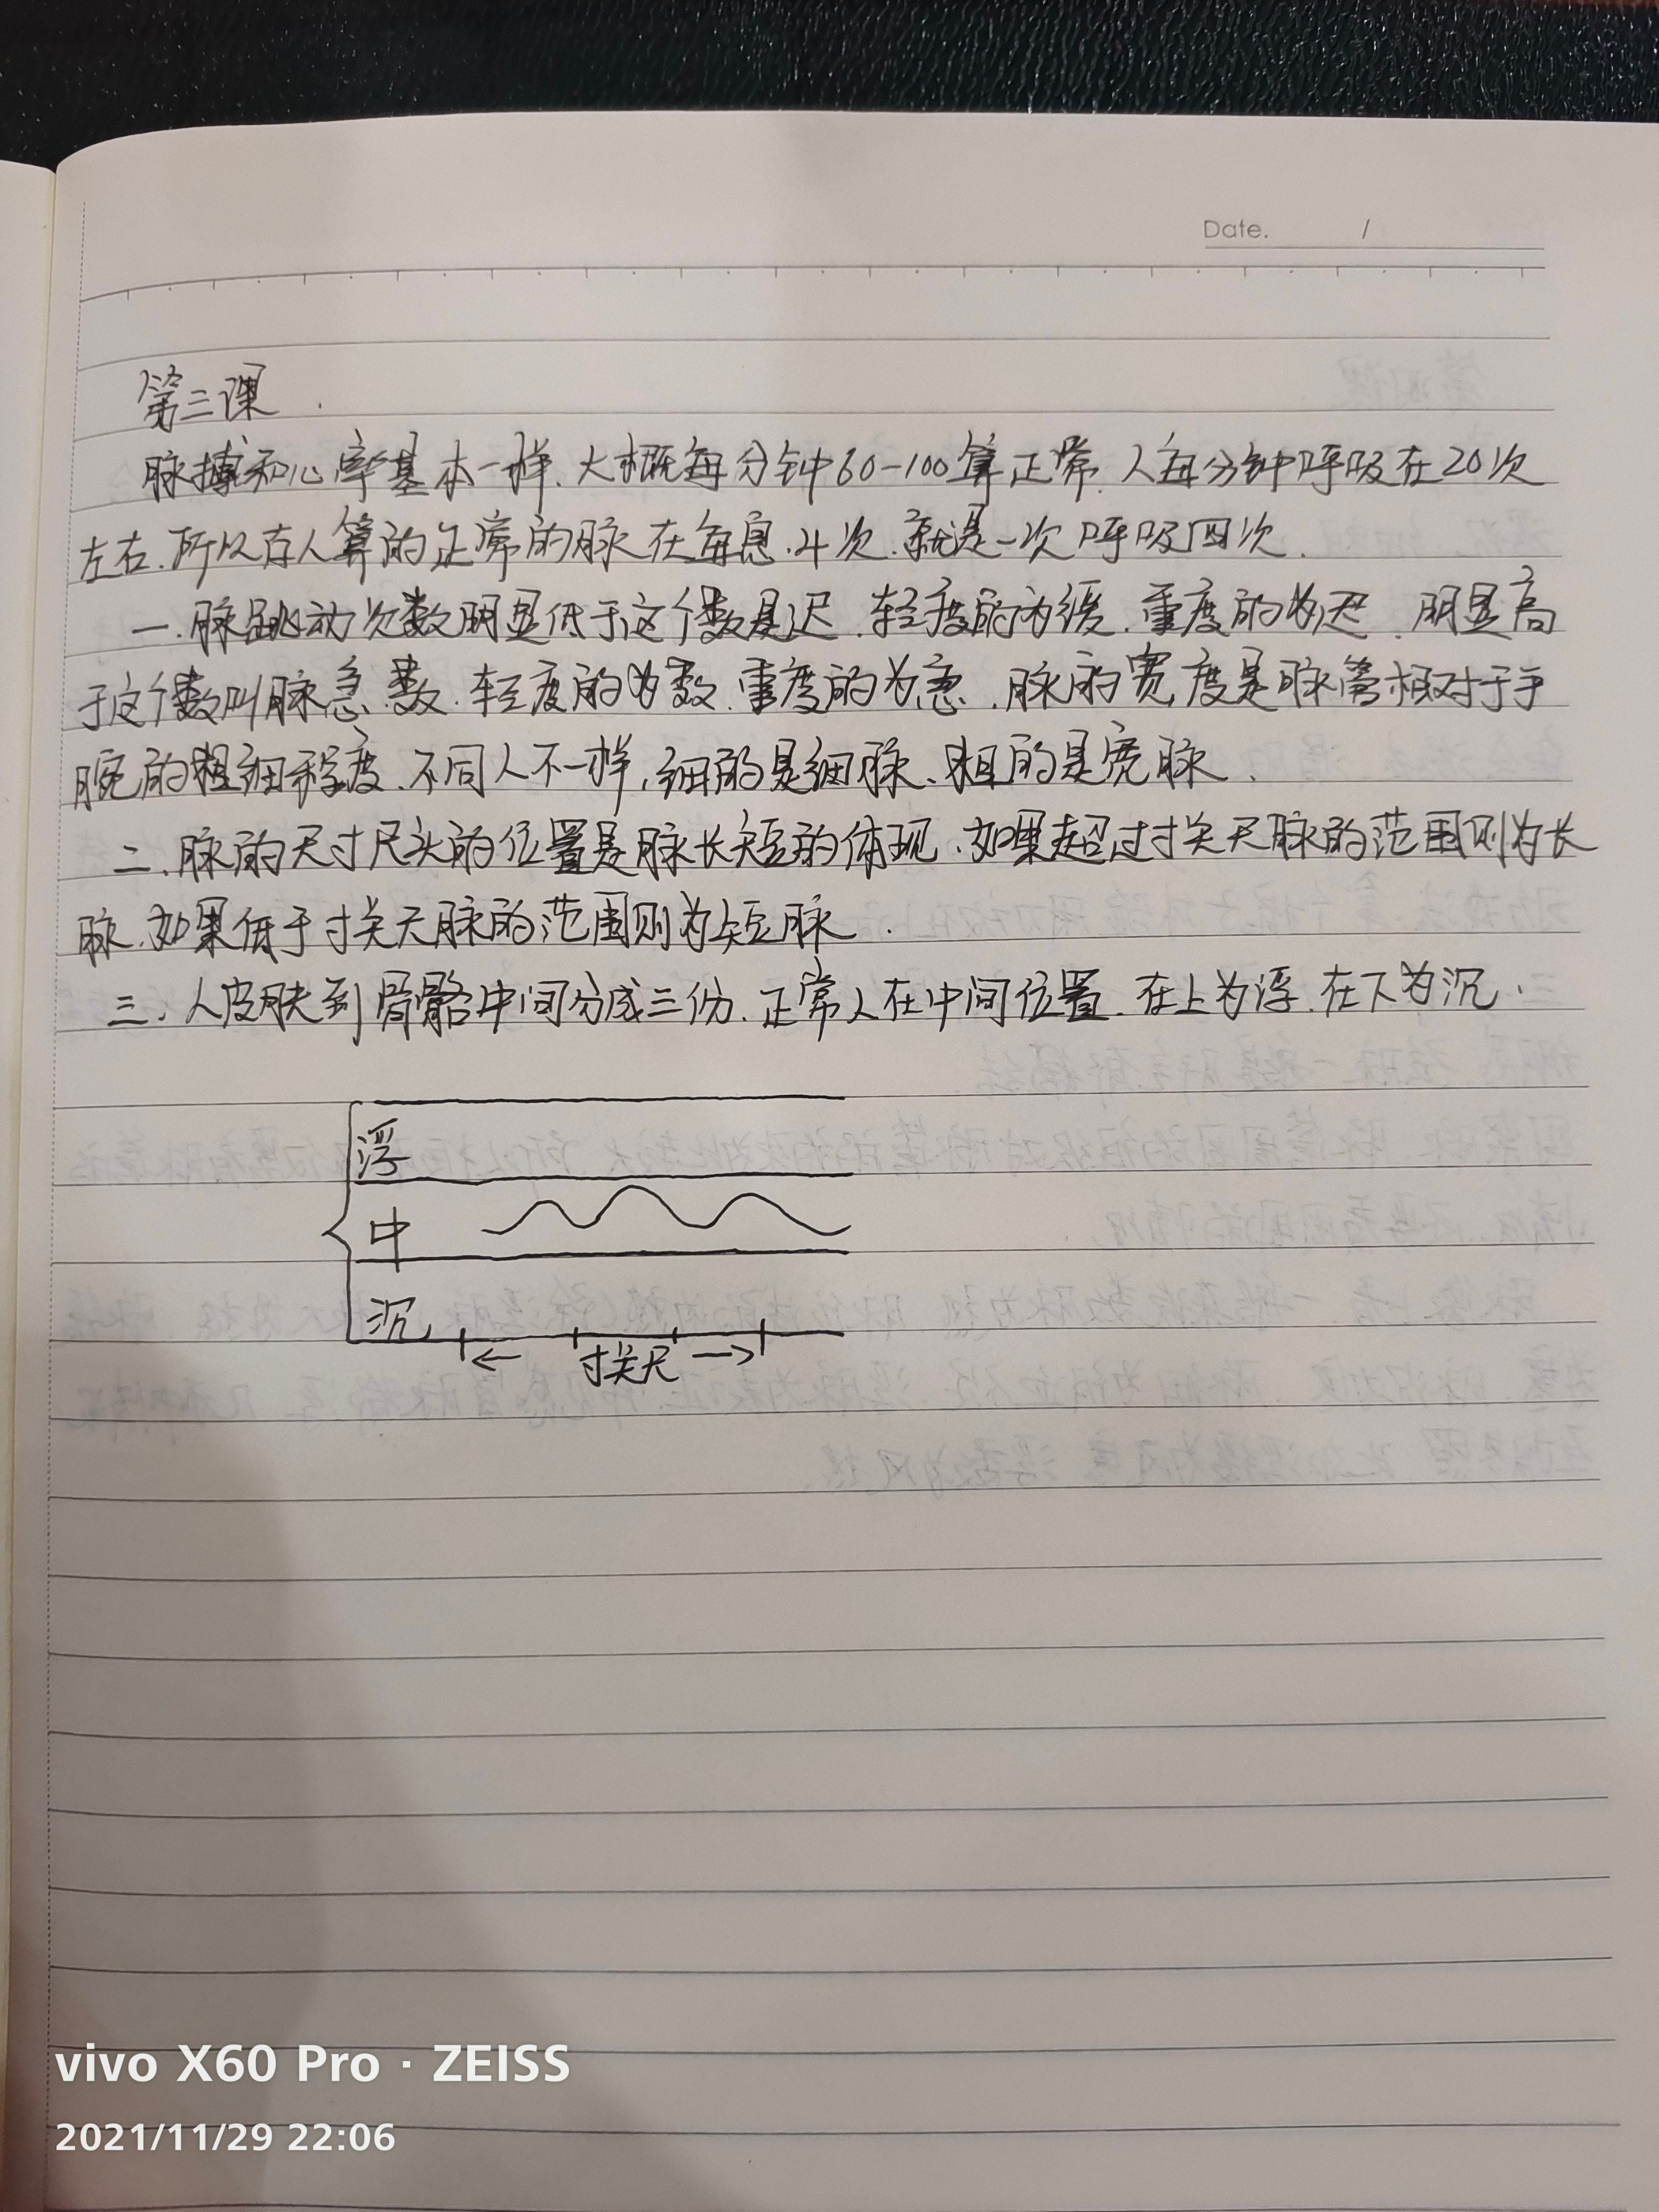 Date. /
第三课
脉搏和心率基本一样.大概每分钟60-100算正常.人每分钟呼吸在20次
左右.所以古人算的正常的脉在每息.4次.就是一次呼吸四次.
一.脉跳动次数明显低于这个数是迟.轻度的为缓.重度的为迟.明显高
于这个数叫脉急.数.轻度的为数.重度的为急.脉的宽度是脉管相对于手
腕的粗细程度.不同人不一样,细的是细脉、粗的是宽脉.
二.脉的尺寸尺头的位置是脉长短的体现.如果超过寸关尺脉的范围则为长
脉.如果低于寸关尺脉的范围则为短脉.
三.人皮肤到骨骼中间分成三份.正常人在中间位置.在上为浮.在下为沉.
浮
中
沉
← 寸关尺 →
vivo X60 Pro · ZEISS
2021/11/29 22:06